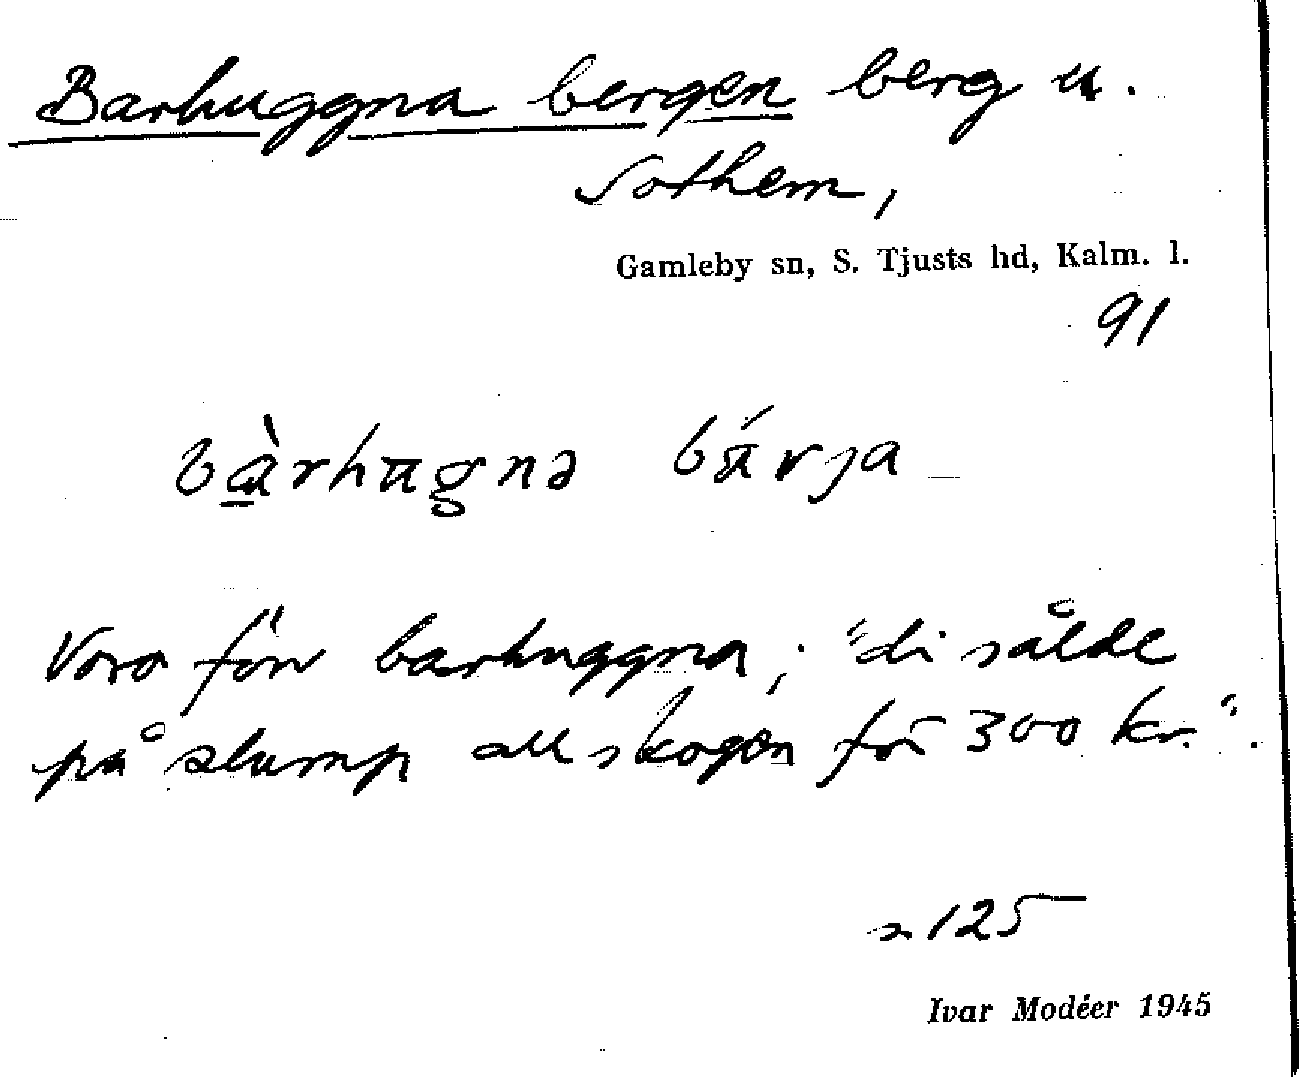 Barhuggna bergen berg u.
Sothem,
Gamleby sn, S. Tjusts hd, Kalm. l.
91
bàrhugnə bárja
Voro förr barhuggna; "di sålde
på slump all skogen för 300 kr.".
s. 125
Ivar Modéer 1945